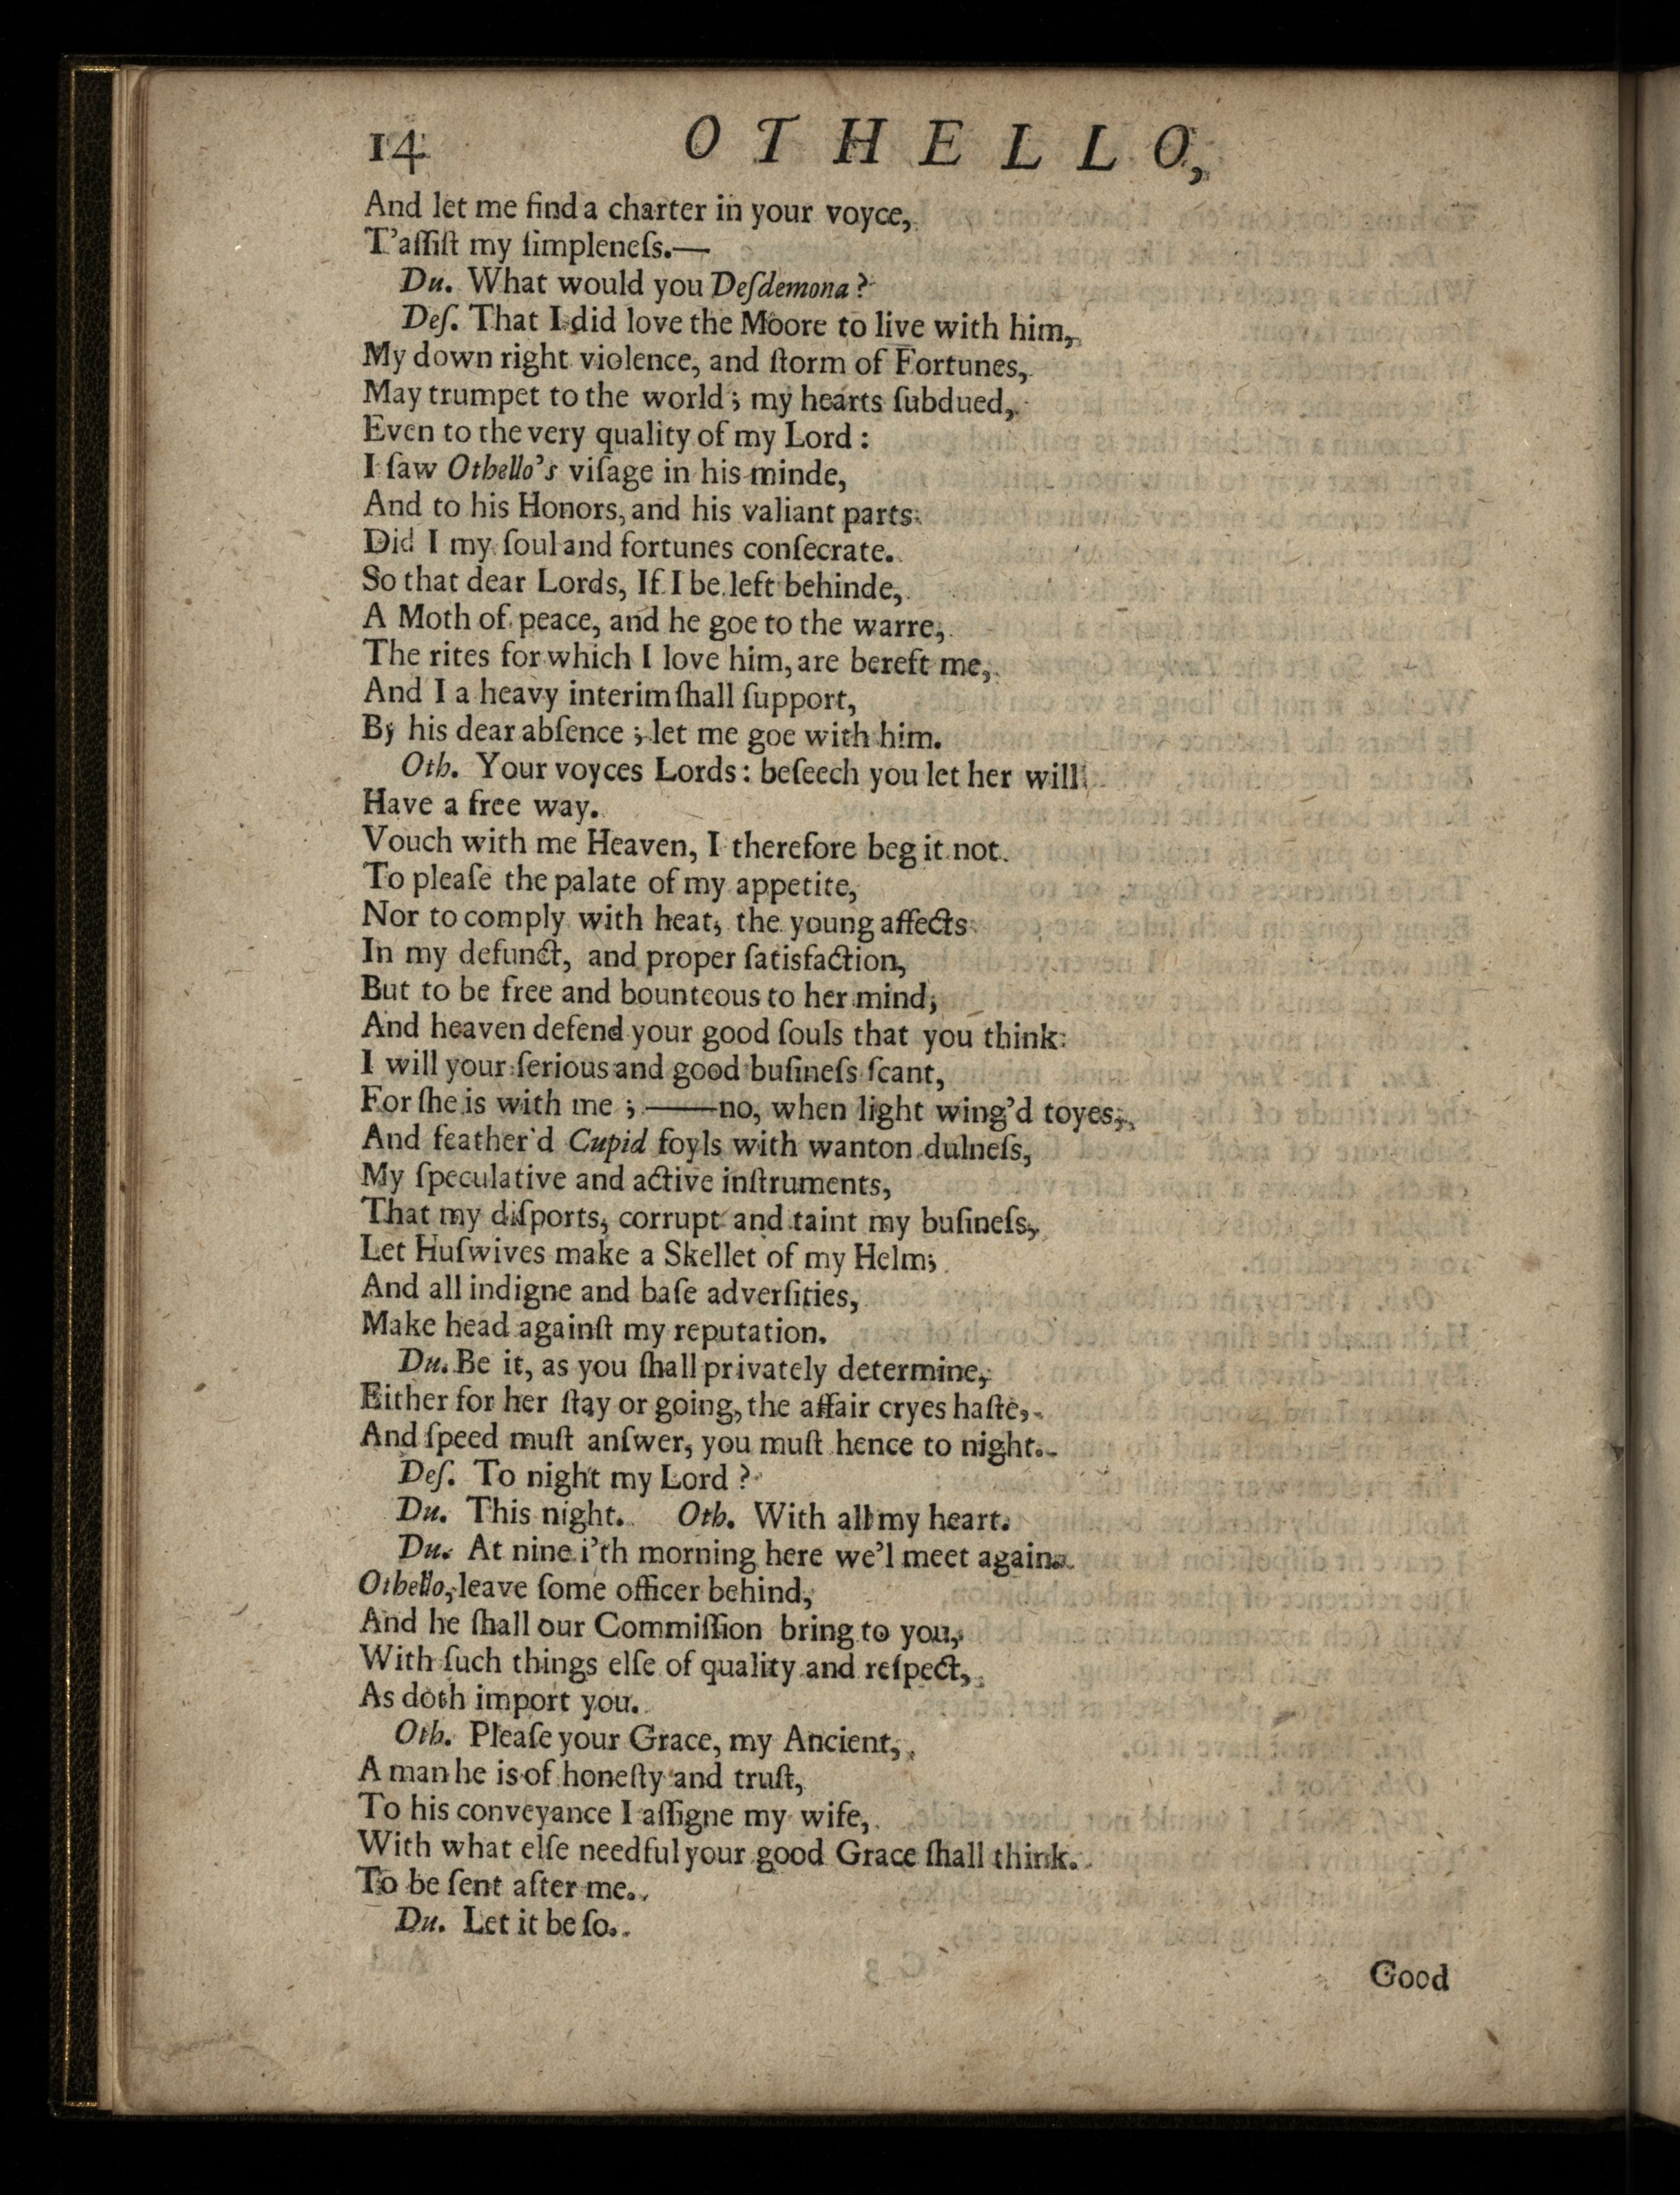 14 OTHELLO,
And let me find a charter in your voyce,
T'aſſiſt my ſimpleneſs.—
Du. What would you Deſdemona?
Deſ. That I did love the Moore to live with him,
My down right violence, and ſtorm of Fortunes,
May trumpet to the world; my hearts ſubdued,
Even to the very quality of my Lord:
I ſaw Othello's viſage in his minde,
And to his Honors, and his valiant parts
Did I my ſoul and fortunes conſecrate.
So that dear Lords, If I be left behinde,
A Moth of peace, and he goe to the warre,
The rites for which I love him, are bereft me,
And I a heavy interim ſhall ſupport,
By his dear abſence; let me goe with him.
Oth. Your voyces Lords: beſeech you let her will
Have a free way.
Vouch with me Heaven, I therefore beg it not
To pleaſe the palate of my appetite,
Nor to comply with heat, the young affects
In my defunct, and proper ſatisfaction,
But to be free and bounteous to her mind,
And heaven defend your good ſouls that you think
I will your ſerious and good buſineſs ſcant,
For ſhe is with me;——no, when light wing'd toyes,
And feather'd Cupid foyls with wanton dulneſs,
My ſpeculative and active inſtruments,
That my diſports, corrupt and taint my buſineſs,
Let Huſwives make a Skellet of my Helm,
And all indigne and baſe adverſities,
Make head againſt my reputation.
Du. Be it, as you ſhall privately determine,
Either for her ſtay or going, the affair cryes haſte,
And ſpeed muſt anſwer, you muſt hence to night.
Deſ. To night my Lord?
Du. This night. Oth. With all my heart.
Du. At nine i'th morning here we'l meet again.
Othello, leave ſome officer behind,
And he ſhall our Commiſſion bring to you,
With ſuch things elſe of quality and reſpect,
As doth import you.
Oth. Pleaſe your Grace, my Ancient,
A man he is of honeſty and truſt,
To his conveyance I aſſigne my wife,
With what elſe needful your good Grace ſhall think
To be ſent after me.
Du. Let it be ſo.
Good